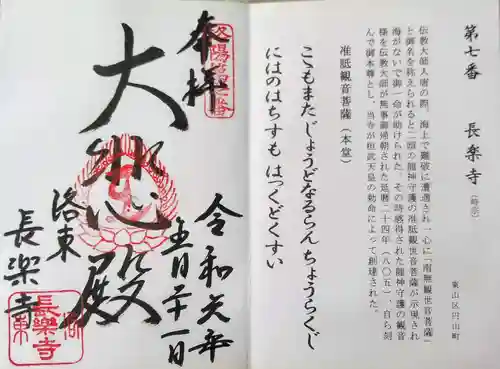 第七番 長楽寺(時宗)
東山区円山町
伝教大師入唐の際、海上で難破に遭遇され一心に「南無観世音菩薩」
と御名を称えられると二頭の龍神守護の准胝観世音菩薩が示現され
海がないで御一命が助けられた。その時感得された龍神守護の観音
様を伝教大師が無事御帰朝された延暦二十四年(八〇五)、自ら刻
んで御本尊とし、当寺が桓武天皇の勅命によって創建された。
准胝観音菩薩(本堂)
こもまた じょうどなるらん ちょうらくじ
にはのはちすも はつくどくすい
令和元年
五月二十一日
奉拝
洛陽 番
大悲殿
洛東
長樂寺
洛東
長樂寺